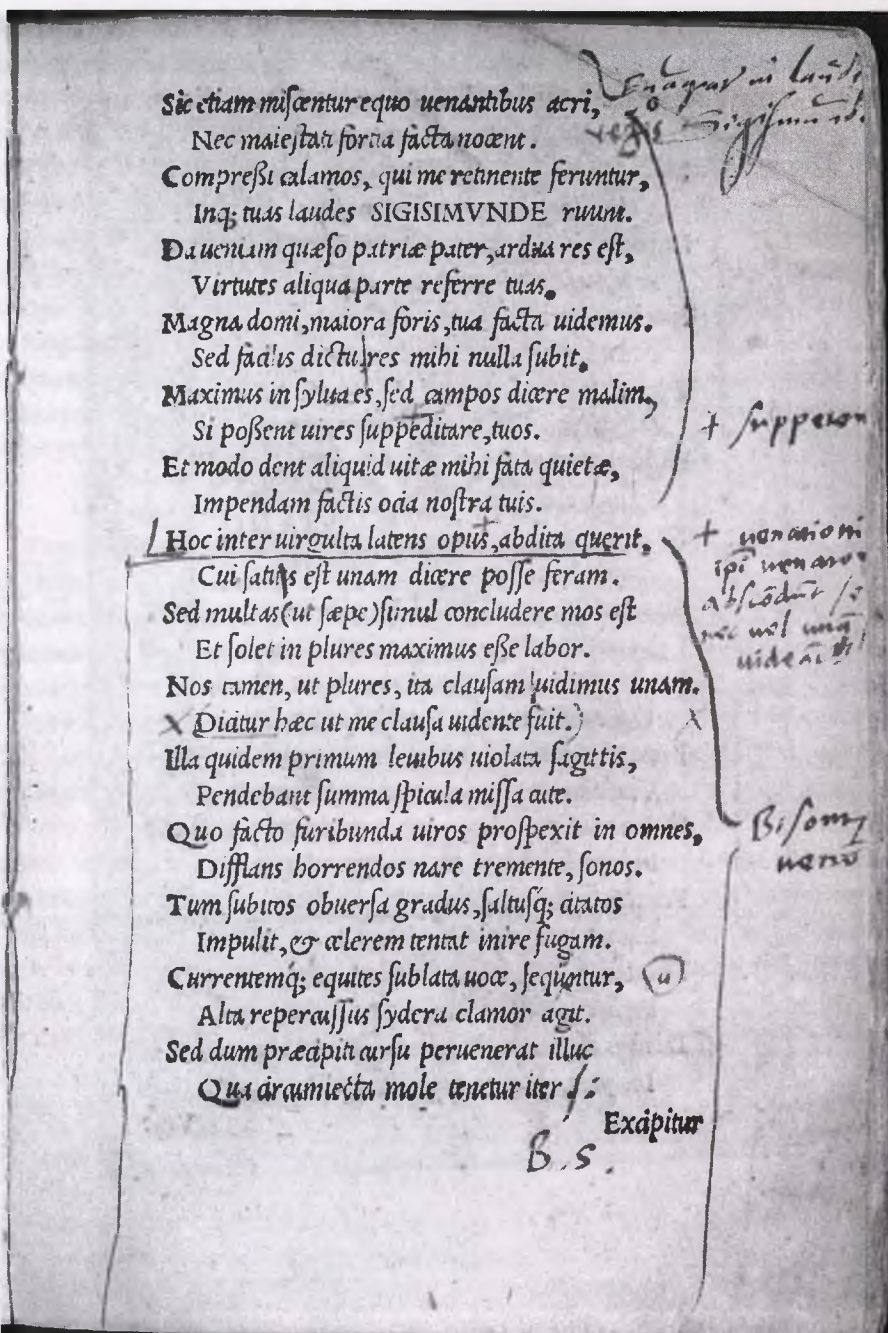 Sic etiam miſcentur equo uenantibus acri,
Nec maieſtati fortia facta nocent.
Compreßi calamos, qui me retinente feruntur,
Inq; tuas laudes SIGISIMVNDE ruunt.
Da ueniam quæſo patriæ pater, ardua res eſt,
Virtutes aliqua parte referre tuas.
Magna domi, maiora foris, tua facta uidemus.
Sed facilis dictu res mihi nulla ſubit.
Maximus in ſylua es, ſed campos dicere malim,
Si poßent uires ſuppeditare, tuos.
+ ſuppeton
Et modo dent aliquid uitæ mihi fata quietæ,
Impendam factis ocia noſtra tuis.
Hoc inter uirgulta latens opus, abdita querit,
+ uenationi
Cui ſatius eſt unam dicere poſſe feram.
Sed multas (ut ſæpe) ſimul concludere mos eſt
Et ſolet in plures maximus eße labor.
Nos tamen, ut plures, ita clauſam uidimus unam.
X Dicitur hæc ut me clauſa uidente fuit.) X
Illa quidem primum leuibus uiolata ſagittis,
Pendebant ſumma ſpicula miſſa cute.
Quo facto furibunda uiros proſpexit in omnes,
Difflans horrendos nare tremente, ſonos.
Tum ſubitos obuerſa gradus, ſaltuſq́; citatos
Impulit, & celerem tentat inire fugam.
Currentemq́; equites ſublata uoce, ſequntur, u
Alta repercuſſus ſydera clamor agit.
Sed dum præcipiti curſu peruenerat illuc
Qua circumiecta mole tenetur iter
Excipitur
B. S.